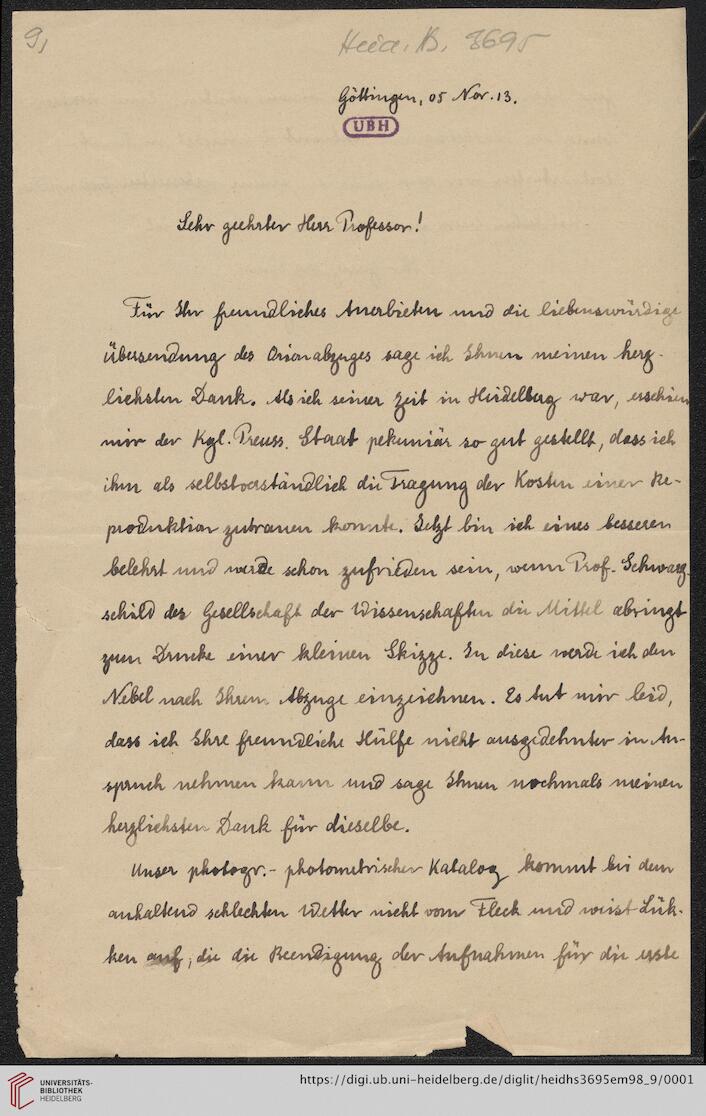 9,
Heid. B. 3695
Göttingen, 05 Nov. 13.
UBH
Sehr geehrter Herr Professor!
Für Ihr freundliches Anerbieten und die liebenswürdige
Übersendung des Orionabzuges sage ich Ihnen meinen herz-
lichsten Dank. Als ich seiner Zeit in Heidelberg war, erschien
mir der Kgl. Preuss. Staat pekuniär so gut gestellt, dass ich
ihm als selbstverständlich die Tragung der Kosten einer Re-
produktion zutrauen konnte. Jetzt bin ich eines besseren
belehrt und werde schon zufrieden sein, wenn Prof. Schwarz-
schild der Gesellschaft der Wissenschaften die Mittel abringt
zum Drucke einer kleinen Skizze. In diese werde ich den
Nebel nach Ihrem Abzuge einzeichnen. Es tut mir leid,
dass ich Ihre freundliche Hülfe nicht ausgedehnter in An-
spruch nehmen kann und sage Ihnen nochmals meinen
herzlichsten Dank für dieselbe.
Unser photogr.- photometrischer Katalog kommt bei dem
anhaltend schlechten Wetter nicht vom Fleck und weist Lük-
ken auf, die die Beendigung der Aufnahmen für die erste
UNIVERSITÄTS-
BIBLIOTHEK
HEIDELBERG
https://digi.ub.uni-heidelberg.de/diglit/heidhs3695em98_9/0001